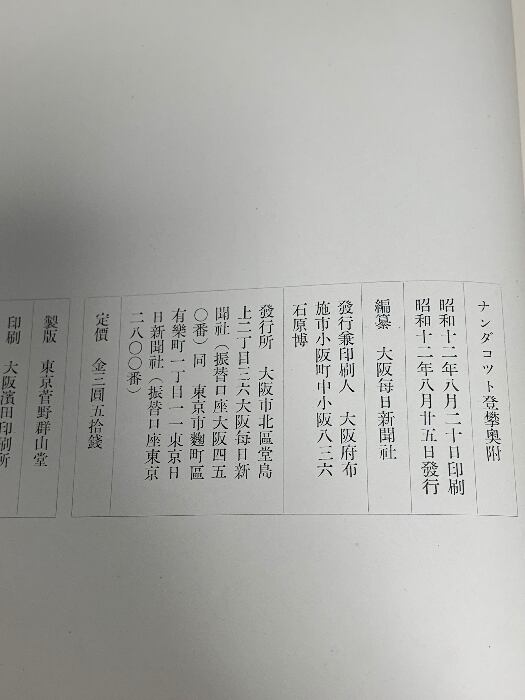 ナンダコット登攀奥附
昭和十二年八月二十日印刷
昭和十二年八月廿五日發行
編纂　大阪每日新聞社
發行兼印刷人　大阪府布
施市小阪町中小阪八三六
石原博
發行所　大阪市北區堂島
上二丁目三六大阪每日新
聞社（振替口座大阪四五
〇番）同　東京市麴町區
有樂町一丁目一一東京日
日新聞社（振替口座東京
二八〇〇番）
定價　金三圓五拾錢
製版　東京菅野群山堂
印刷　大阪濱田印刷所